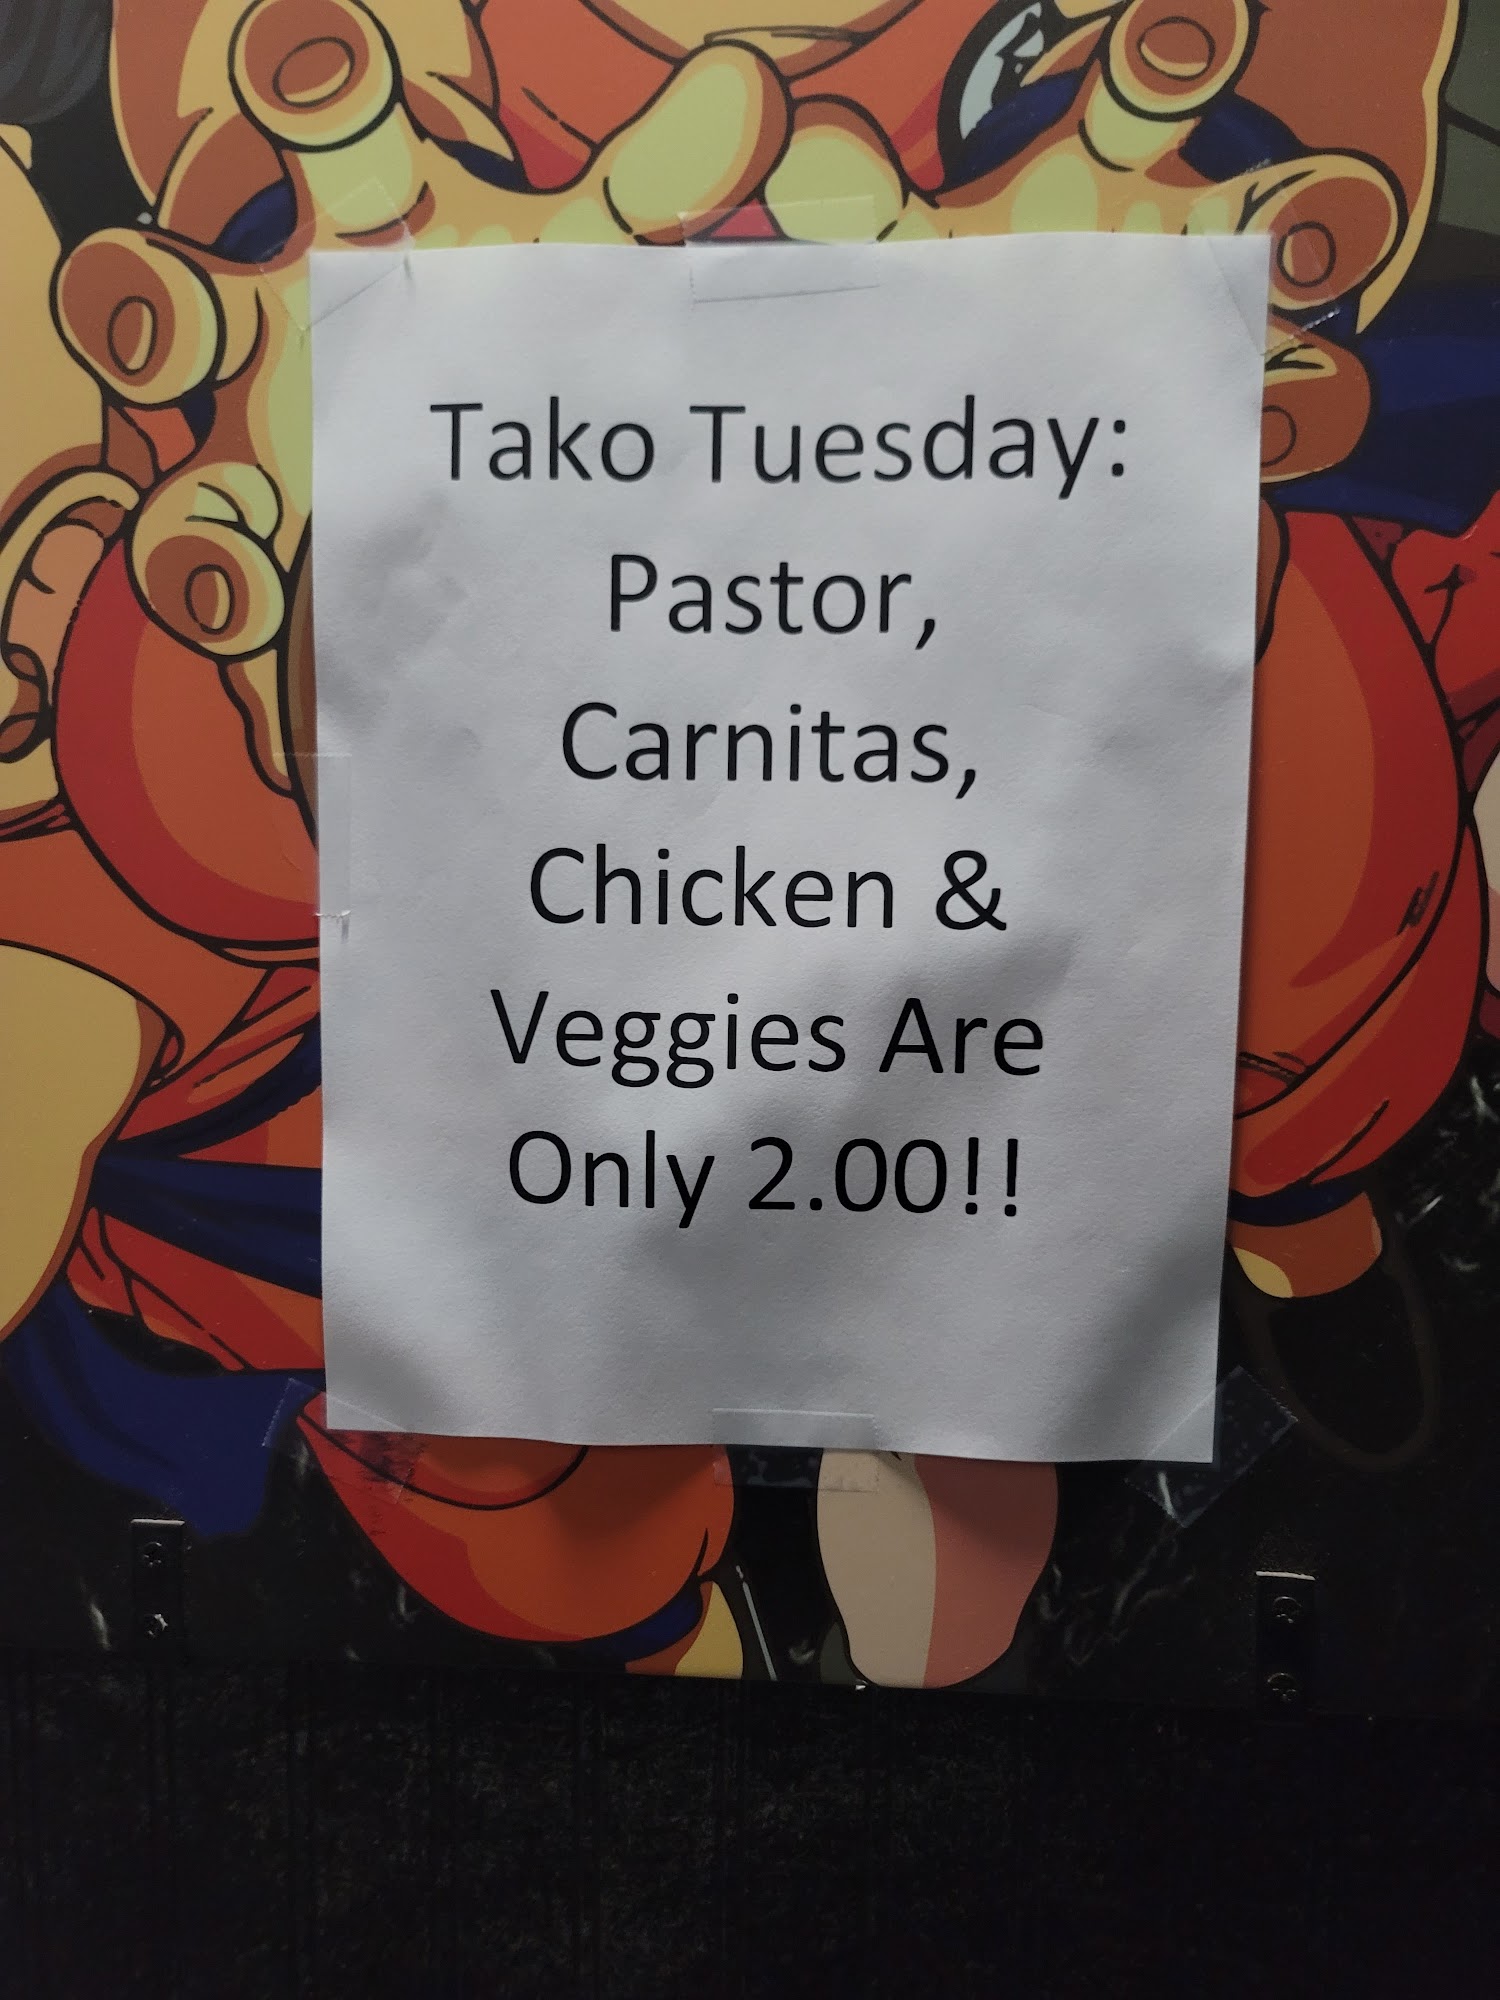 Tako Tuesday:
Pastor,
Carnitas,
Chicken &
Veggies Are
Only 2.00!!